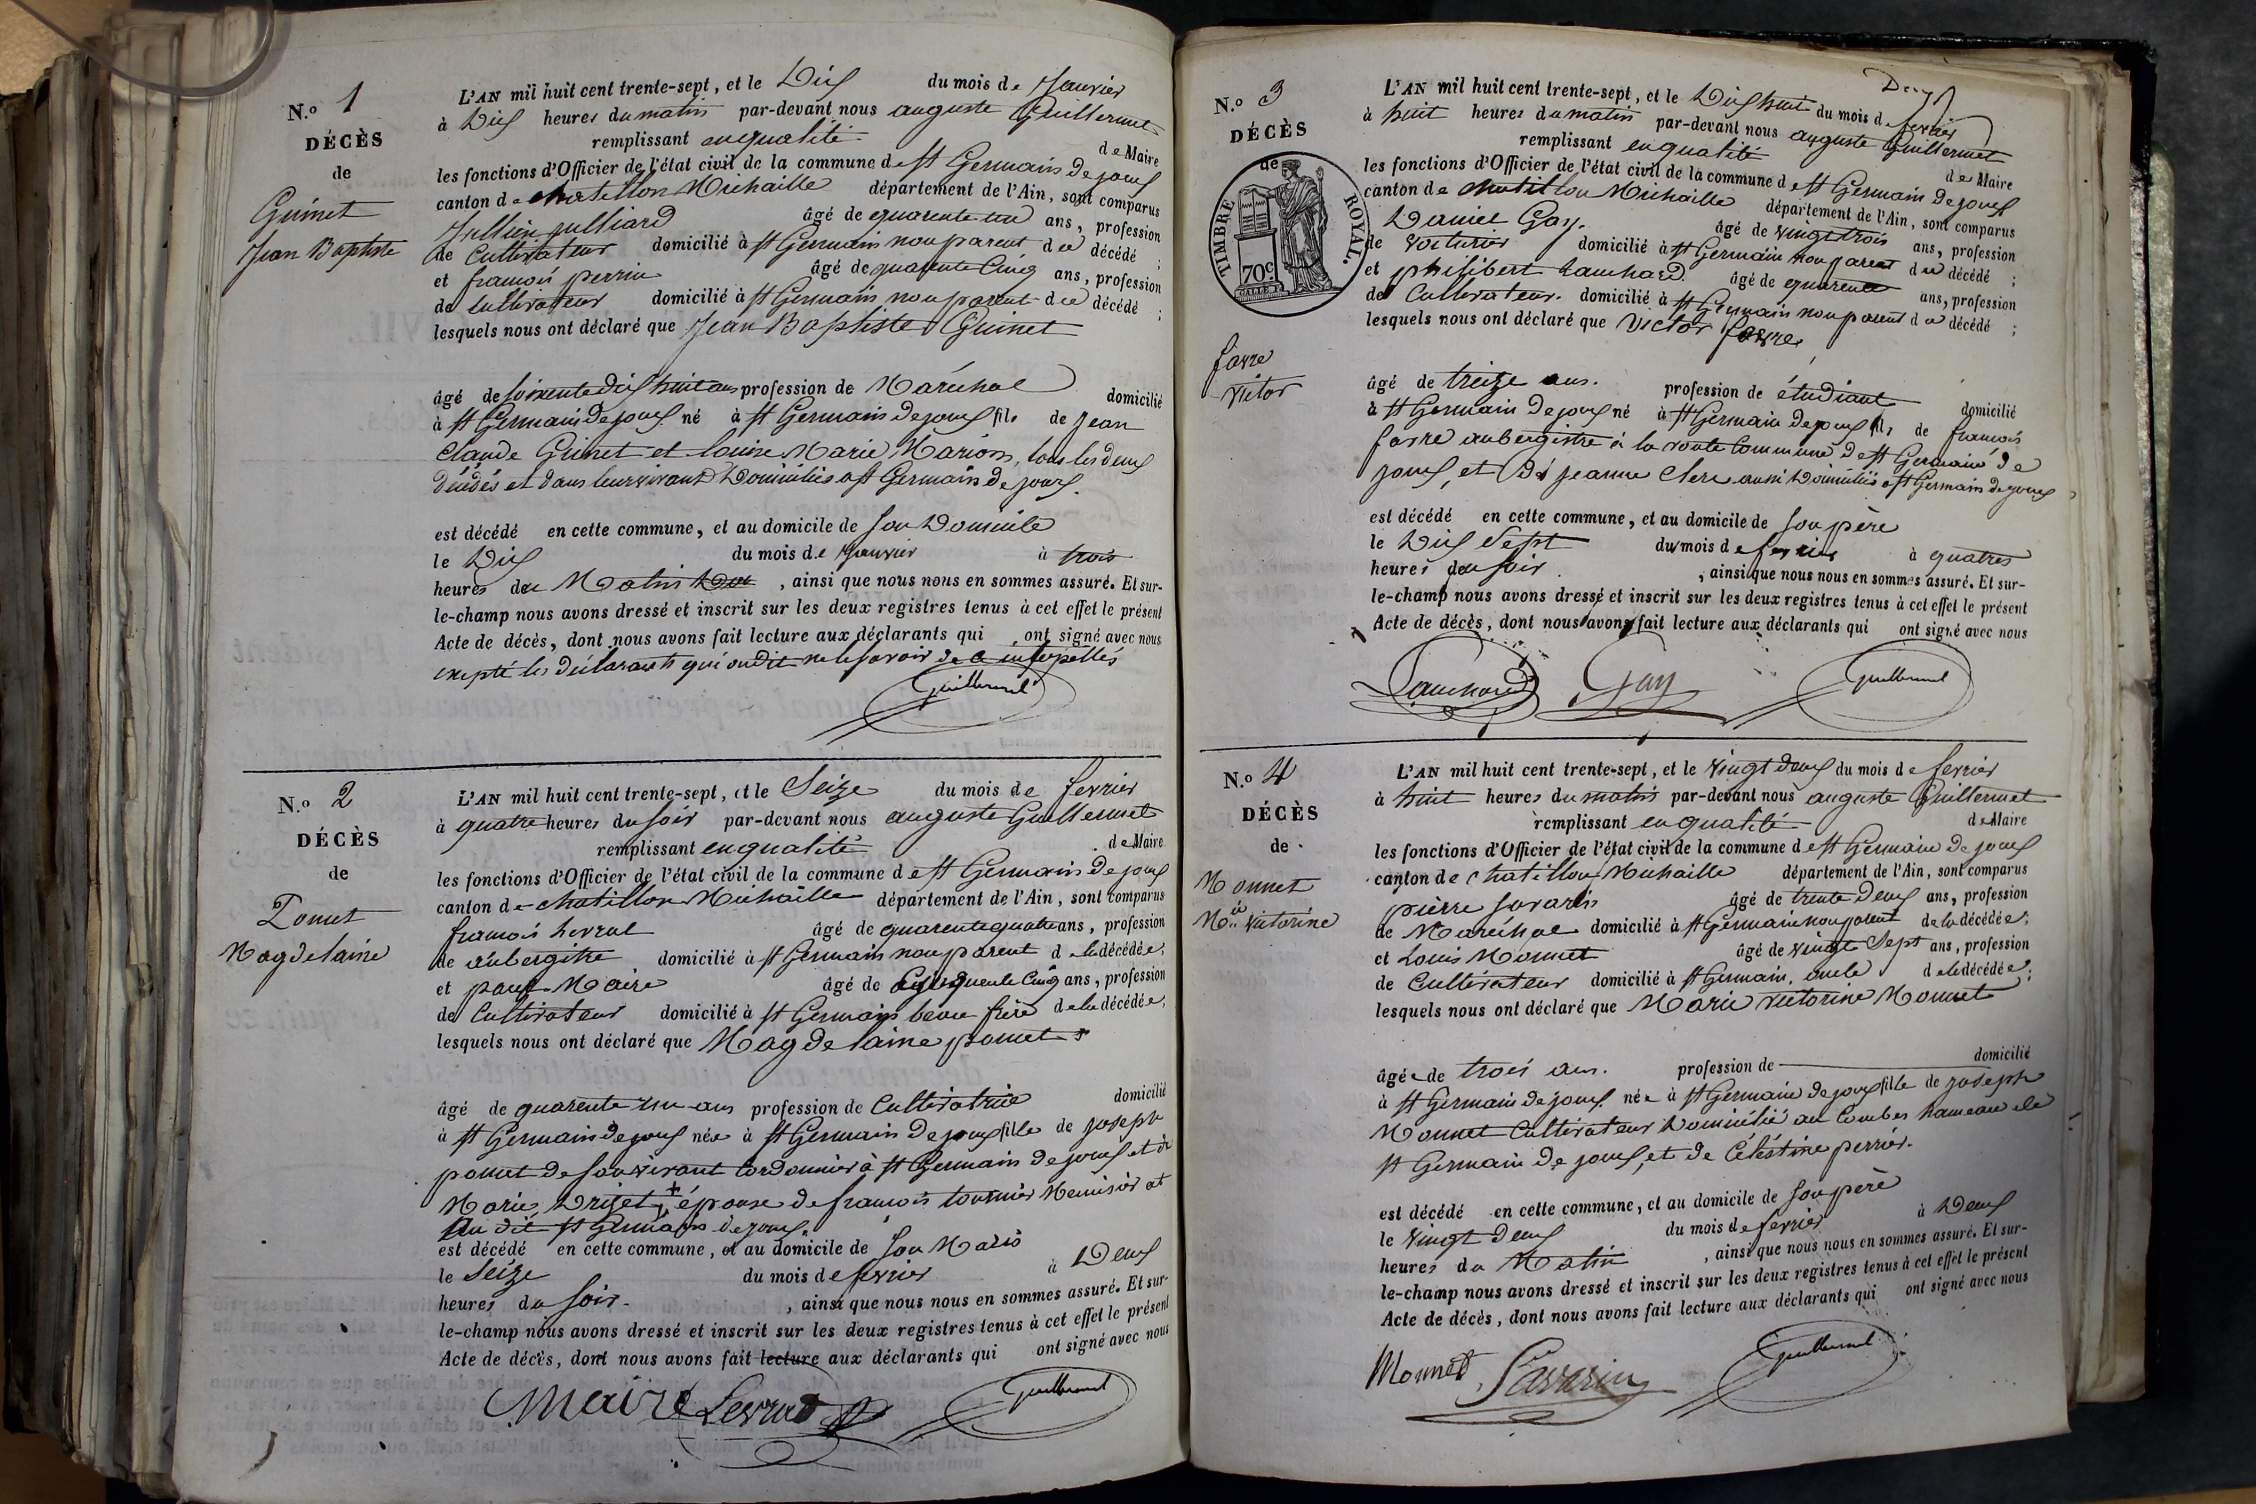 N.º 1
DÉCÈS
de
Guinet
Jean Baptiste
L'AN mil huit cent trente-sept, et le Dix du mois de Janvier
à Dix heures du matin par-devant nous auguste Guillermet
remplissant en qualité de Maire
les fonctions d'Officier de l'état civil de la commune de St Germain De joux
canton de chatillon Michaille département de l'Ain, sont comparus
Julliard âgé de quarente ans, profession
de Cultivateur domicilié à St Germain non parent du décédé ;
et francois perrin âgé de quarente Cinq ans, profession
de cultivateur domicilié à St Germain non parent du décédé ;
lesquels nous ont déclaré que Jean Baptiste Guinet
âgé de soixente Dix huit ans profession de Maréchal domicilié
à St Germain De joux né à St Germain de joux fils de Jean
Claude Guinet et Louise Marie Marion, tous les deux
décédés et dans leur vivant Domiciliés a St Germain De joux.
est décédé en cette commune, et au domicile de son Domicile
le Dix du mois de Janvier à trois
heures du Matin , ainsi que nous nous en sommes assuré. Et sur-
le-champ nous avons dressé et inscrit sur les deux registres tenus à cet effet le présent
Acte de décès, dont nous avons fait lecture aux déclarants qui ont signé avec nous
excepté les déclarants qui ondit ne le savoir de ce interpellés
Guillermet
N.º 2
DÉCÈS
de
Pomet
Magdelaine
L'AN mil huit cent trente-sept, et le Seize du mois de fevrier
à quatre heures du soir par-devant nous auguste Guillermet
remplissant en qualité de Maire
les fonctions d'Officier de l'état civil de la commune de St Germain De joux
canton de chatillon Michaille département de l'Ain, sont comparus
francois levrat âgé de quarente quatre ans, profession
de aubergitre domicilié à St Germain non parent de la décédée,
et paul Maire âgé de Cinquente Cinq ans, profession
de Cultivateur domicilié à St Germain beau frère de la décédée,
lesquels nous ont déclaré que Magdelaine pomet
âgé de quarente un ans profession de Cultivatrice domicilié
à St Germain De joux née à St Germain De joux fille de joseph
pomet de son vivant Cordonnier à St Germain de joux et de
Marie Drizet + épouse de francois tournier Menisier at
Au dit St Germain de joux.
est décédé en cette commune, et au domicile de son Maris
le Seize du mois de fevrier à Deux
heures du soir. , ainsi que nous nous en sommes assuré. Et sur-
le-champ nous avons dressé et inscrit sur les deux registres tenus à cet effet le présent
Acte de décès, dont nous avons fait lecture aux déclarants qui ont signé avec nous
Maire Levrat Guillermet
N.º 3
DÉCÈS
de
TIMBRE ROYAL.
70c.
favre
victor
L'AN mil huit cent trente-sept, et le Dix huit du mois de fevrier
à huit heures du matin par-devant nous auguste Guillermet
remplissant en qualité de Maire
les fonctions d'Officier de l'état civil de la commune de St Germain De joux
canton de chatillon Michaille département de l'Ain, sont comparus
Daniel Gay. âgé de vingt trois ans, profession
de voiturier domicilié à St Germain non parent du décédé ;
et philibert Lauchard âgé de quarente ans, profession
de Cultivateur. domicilié à St Germain non parent du décédé ;
lesquels nous ont déclaré que Victor favre
âgé de treize ans. profession de étudiant domicilié
à St Germain De joux né à St Germain de joux fils de francois
favre aubergistre à la route Commune de St Germain de
joux, et De jeanne Clerc aussi Domiciliés a St Germain de joux
est décédé en cette commune, et au domicile de son père
le Dix Sept du mois de fevrier à quatres
heures du soir , ainsi que nous nous en sommes assuré. Et sur-
le-champ nous avons dressé et inscrit sur les deux registres tenus à cet effet le présent
Acte de décès, dont nous avons fait lecture aux déclarants qui ont signé avec nous
Lauchard Gay Guillermet
N.º 4
DÉCÈS
de
Monnet
Mie victorine
L'AN mil huit cent trente-sept, et le vingt deux du mois de fevrier
à huit heures du matin par-devant nous auguste Guillermet
remplissant en qualité de Maire
les fonctions d'Officier de l'état civil de la commune de St Germain de joux
canton de chatillon Michaille département de l'Ain, sont comparus
pierre Savarin âgé de trente Deux ans, profession
de Maréchal domicilié à St Germain non parent de la décédée,
et Louis Monnet âgé de vingt Sept ans, profession
de Cultivateur domicilié à St Germain, oncle de la décédée,
lesquels nous ont déclaré que Marie victorine Monnet
âgée de trois ans. profession de domicilié
à St Germain de joux. née à St Germain de joux fille de joseph
Monnet Cultivateur Domicilié au Combes hameau de
St Germain De joux, et de Célestine perrier.
est décédé en cette commune, et au domicile de son père
le vingt Deux du mois de fevrier à Deux
heures du Matin , ainsi que nous nous en sommes assuré. Et sur-
le-champ nous avons dressé et inscrit sur les deux registres tenus à cet effet le présent
Acte de décès, dont nous avons fait lecture aux déclarants qui ont signé avec nous
Monnet Savarin Guillermet